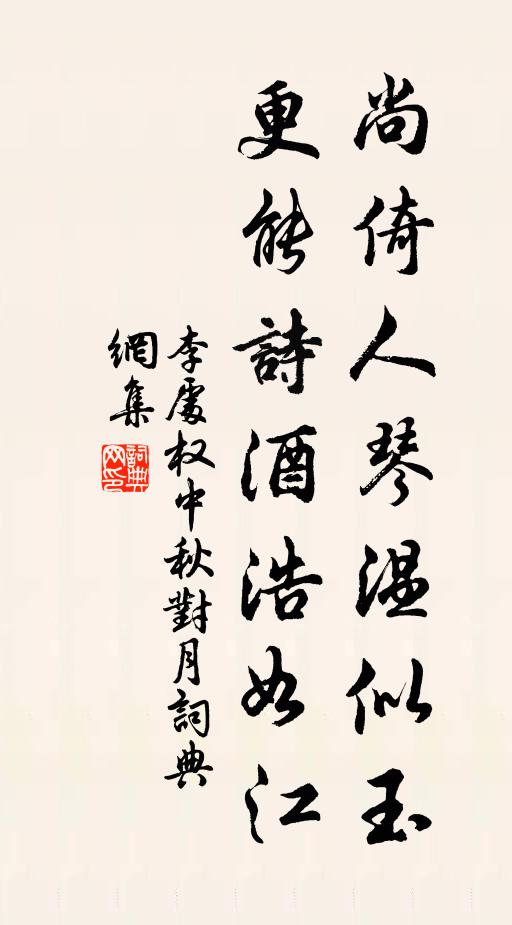 尚倚人琴溫似玉
更能詩酒浩如江
李處权中秋對月詞典
網集
詞典
网印